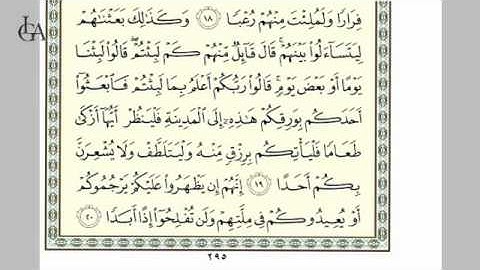 LGA
فِرَارًا وَلَمُلِئْتَ مِنْهُمْ رُعْبًا ١٨ وَكَذَٰلِكَ بَعَثْنَٰهُمْ
لِيَتَسَآءَلُوا۟ بَيْنَهُمْ ۚ قَالَ قَآئِلٌ مِّنْهُمْ كَمْ لَبِثْتُمْ ۖ قَالُوا۟ لَبِثْنَا
يَوْمًا أَوْ بَعْضَ يَوْمٍ ۚ قَالُوا۟ رَبُّكُمْ أَعْلَمُ بِمَا لَبِثْتُمْ فَٱبْعَثُوٓا۟
أَحَدَكُم بِوَرِقِكُمْ هَٰذِهِۦٓ إِلَى ٱلْمَدِينَةِ فَلْيَنظُرْ أَيُّهَآ أَزْكَىٰ
طَعَامًا فَلْيَأْتِكُم بِرِزْقٍ مِّنْهُ وَلْيَتَلَطَّفْ وَلَا يُشْعِرَنَّ
بِكُمْ أَحَدًا ١٩ إِنَّهُمْ إِن يَظْهَرُوا۟ عَلَيْكُمْ يَرْجُمُوكُمْ
أَوْ يُعِيدُوكُمْ فِى مِلَّتِهِمْ وَلَن تُفْلِحُوٓا۟ إِذًا أَبَدًا ٢٠
٢٩٥